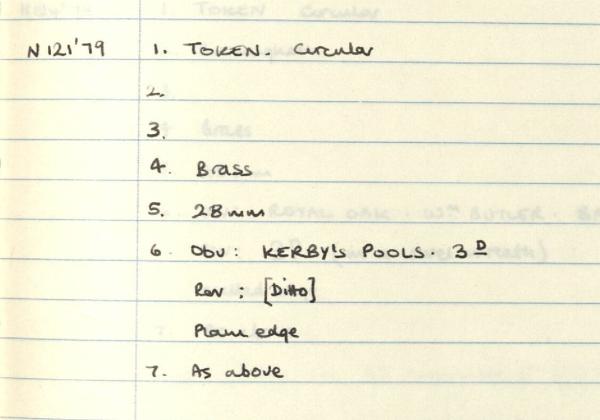 N121'79 1. TOKEN. Circular
2.
3.
4. Brass
5. 28mm
6. Obv : KERBY'S POOLS. 3 D
Rev : [Ditto]
Plain edge
7. As above